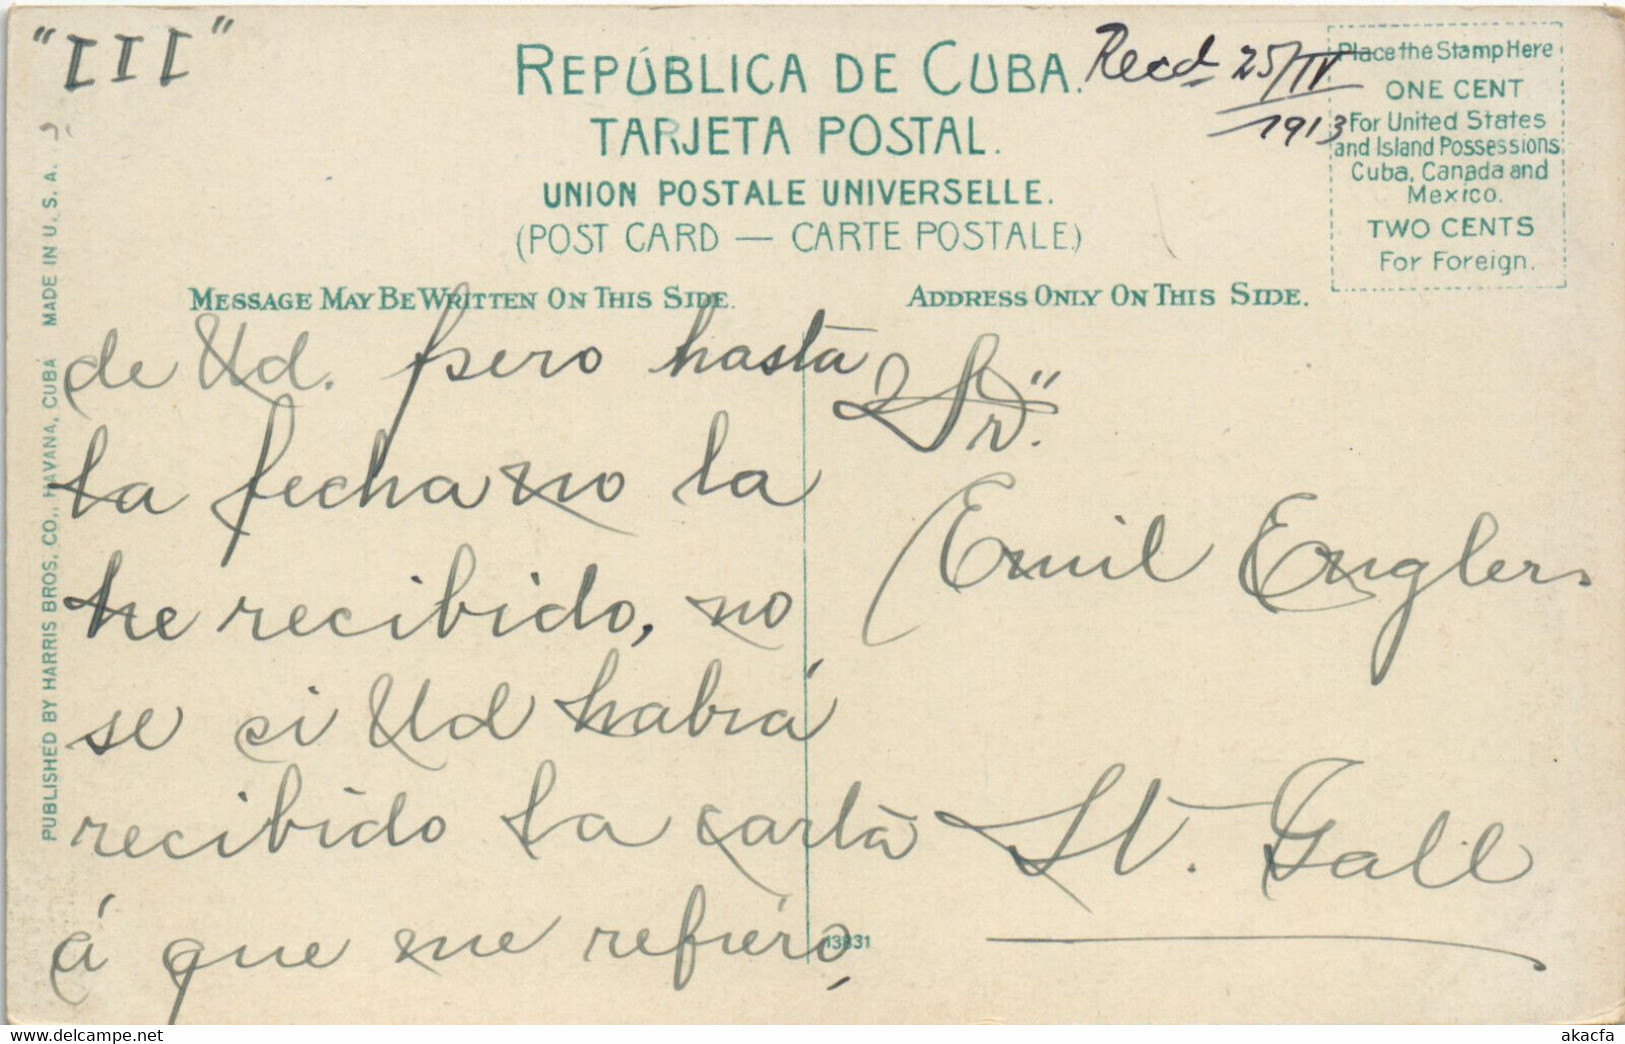 "III"
REPÚBLICA DE CUBA.
Recd 25/IV
1913
TARJETA POSTAL.
UNION POSTALE UNIVERSELLE.
(POST CARD — CARTE POSTALE)
Place the Stamp Here
ONE CENT
For United States
and Island Possessions,
Cuba, Canada and
Mexico.
TWO CENTS
For Foreign.
MESSAGE MAY BE WRITTEN ON THIS SIDE.
ADDRESS ONLY ON THIS SIDE.
de Ud. pero hasta
la fecha no la
he recibido, no
se si Ud habrá
recibido la carta
á que me refiero,
Sr.
Emil Engler
St. Gall
13831
PUBLISHED BY HARRIS BROS. CO., HAVANA, CUBA MADE IN U. S. A.
akacfa.delcampe.net
akacfa